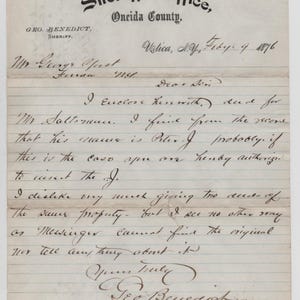 Sheriff's Office,
Oneida County.
GEO. BENEDICT,
SHERIFF.
Utica, N.Y., Feby. 9 1876
Mr George
Dear Sir
I enclose herewith deed for
Mr. Saltsman. I find from the
that his name is Peter J probably. if
this is the case you are hereby authorized
to insert the J.
I dislike very much giving two deeds of
the same property. but I see no other way
as Messinger cannot find the original
nor tell anything about it
Yours Truly
Geo Benedict